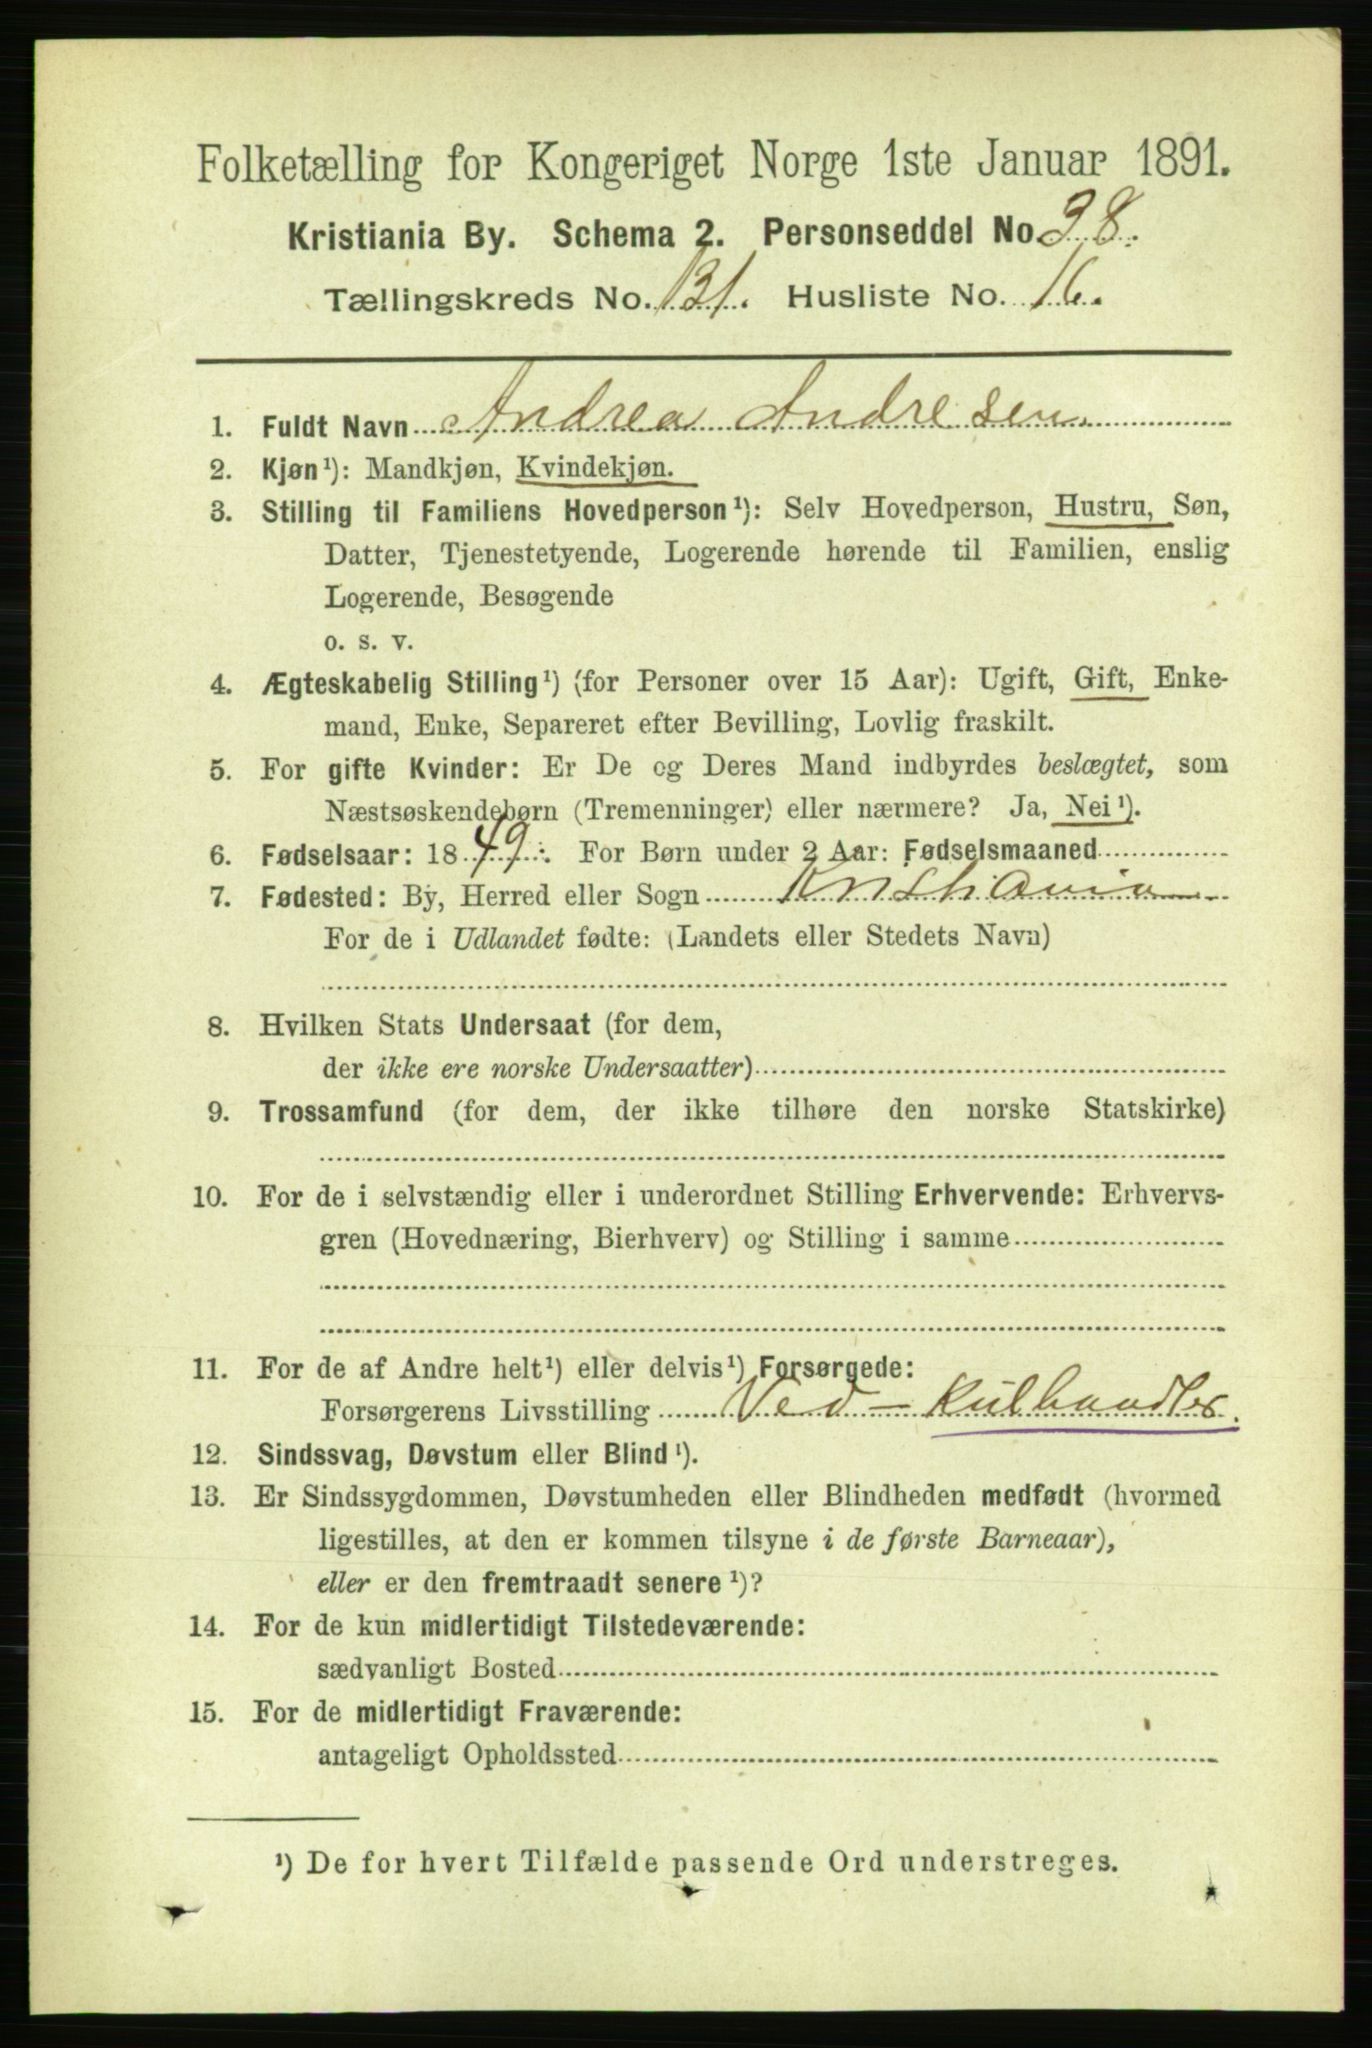 Folketælling for Kongeriget Norge 1ste Januar 1891.
Kristiania By. Schema 2. Personseddel No. 38.
Tællingskreds No. 131. Husliste No. 16.
1. Fuldt Navn Andrea Andresen.
2. Kjøn¹): Mandkjøn, Kvindekjøn.
3. Stilling til Familiens Hovedperson¹): Selv Hovedperson, Hustru, Søn,
Datter, Tjenestetyende, Logerende hørende til Familien, enslig
Logerende, Besøgende
o. s. v.
4. Ægteskabelig Stilling¹) (for Personer over 15 Aar): Ugift, Gift, Enke-
mand, Enke, Separeret efter Bevilling, Lovlig fraskilt.
5. For gifte Kvinder: Er De og Deres Mand indbyrdes beslægtet, som
Næstsøskendebørn (Tremenninger) eller nærmere? Ja, Nei¹).
6. Fødselsaar: 1849. For Børn under 2 Aar: Fødselsmaaned
7. Fødested: By, Herred eller Sogn Kristiania
For de i Udlandet fødte: (Landets eller Stedets Navn)
8. Hvilken Stats Undersaat (for dem,
der ikke ere norske Undersaatter)
9. Trossamfund (for dem, der ikke tilhøre den norske Statskirke)
10. For de i selvstændig eller i underordnet Stilling Erhvervende: Erhvervs-
gren (Hovednæring, Bierhverv) og Stilling i samme
11. For de af Andre helt¹) eller delvis¹) Forsørgede:
Forsørgerens Livsstilling Ved - Kulhandler.
12. Sindssvag, Døvstum eller Blind¹).
13. Er Sindssygdommen, Døvstumheden eller Blindheden medfødt (hvormed
ligestilles, at den er kommen tilsyne i de første Barneaar),
eller er den fremtraadt senere¹)?
14. For de kun midlertidigt Tilstedeværende:
sædvanligt Bosted
15. For de midlertidigt Fraværende:
antageligt Opholdssted
¹) De for hvert Tilfælde passende Ord understreges.